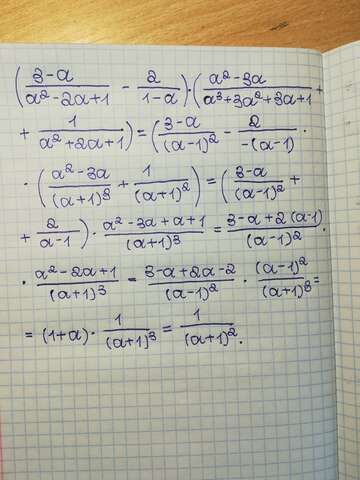 (3-a/a²-2a+1 - 2/1-a)·(a²-3a/a³+3a²+3a+1 +
+ 1/a²+2a+1) = (3-a/(a-1)² - 2/-(a-1) ·
· (a²-3a/(a+1)³ + 1/(a+1)²) = (3-a/(a-1)² +
+ 2/a-1) · a²-3a+a+1/(a+1)³ = 3-a+2(a-1)/(a-1)² ·
· a²-2a+1/(a+1)³ = 3-a+2a-2/(a-1)² · (a-1)²/(a+1)³ =
= (1+a) · 1/(a+1)³ = 1/(a+1)².